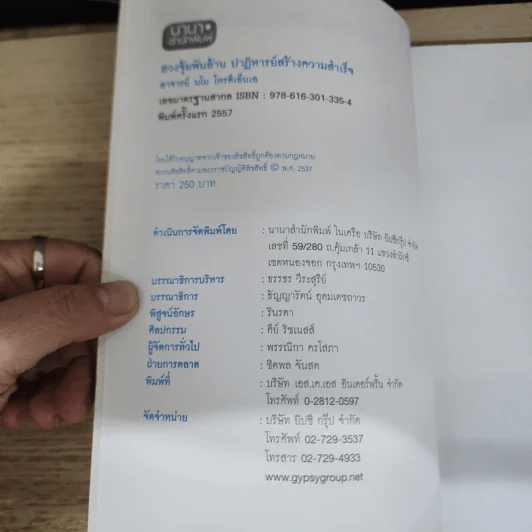 นานา
สำนักพิมพ์
ฮวงจุ้ยพันล้าน ปาฏิหารย์สร้างความสำเร็จ
อาจารย์ นโม โหรดีเอ็นเอ
เลขมาตรฐานสากล ISBN : 978-616-301-335-4
พิมพ์ครั้งแรก 2557
โดยได้รับอนุญาตจากเจ้าของลิขสิทธิ์ถูกต้องตามกฎหมาย
สงวนลิขสิทธิ์ตามพระราชบัญญัติลิขสิทธิ์ © พ.ศ. 2537
ราคา 250 บาท
ดำเนินการจัดพิมพ์โดย : นานาสำนักพิมพ์ ในเครือ บริษัท ยิปซีกรุ๊ป จำกัด
เลขที่ 59/280 ถ.คุ้มเกล้า 11 แขวงลำปลาทิว
เขตหนองจอก กรุงเทพฯ 10530
บรรณาธิการบริหาร :
บรรณาธิการ : ธัญญารัตน์ อุดมเดชถาวร
พิสูจน์อักษร : รินรดา
ศิลปกรรม : คีย์ รีซเนสส์
ผู้จัดการทั่วไป : พรรณิกา ครโสภา
ฝ่ายการตลาด : ชิตพล จันสด
พิมพ์ที่ : บริษัท เอส.เค.เอส อินเตอร์พริ้น จำกัด
โทรศัพท์ 0-2812-0597
จัดจำหน่าย : บริษัท ยิปซี กรุ๊ป จำกัด
โทรศัพท์ 02-729-3537
โทรสาร 02-729-4933
www.gypsygroup.net